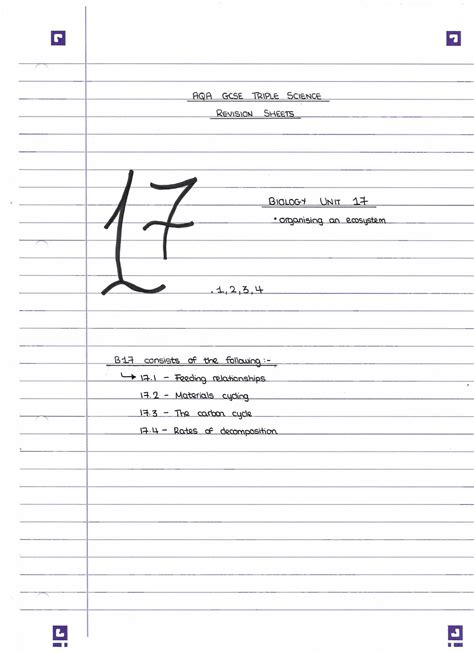 AQA GCSE TRIPLE SCIENCE
REVISION SHEETS
17
BIOLOGY UNIT 17
• organising an ecosystem
. 1, 2, 3, 4
B17 consists of the following :-
↳ 17.1 - Feeding relationships
17.2 - Materials cycling
17.3 - The carbon cycle
17.4 - Rates of decomposition